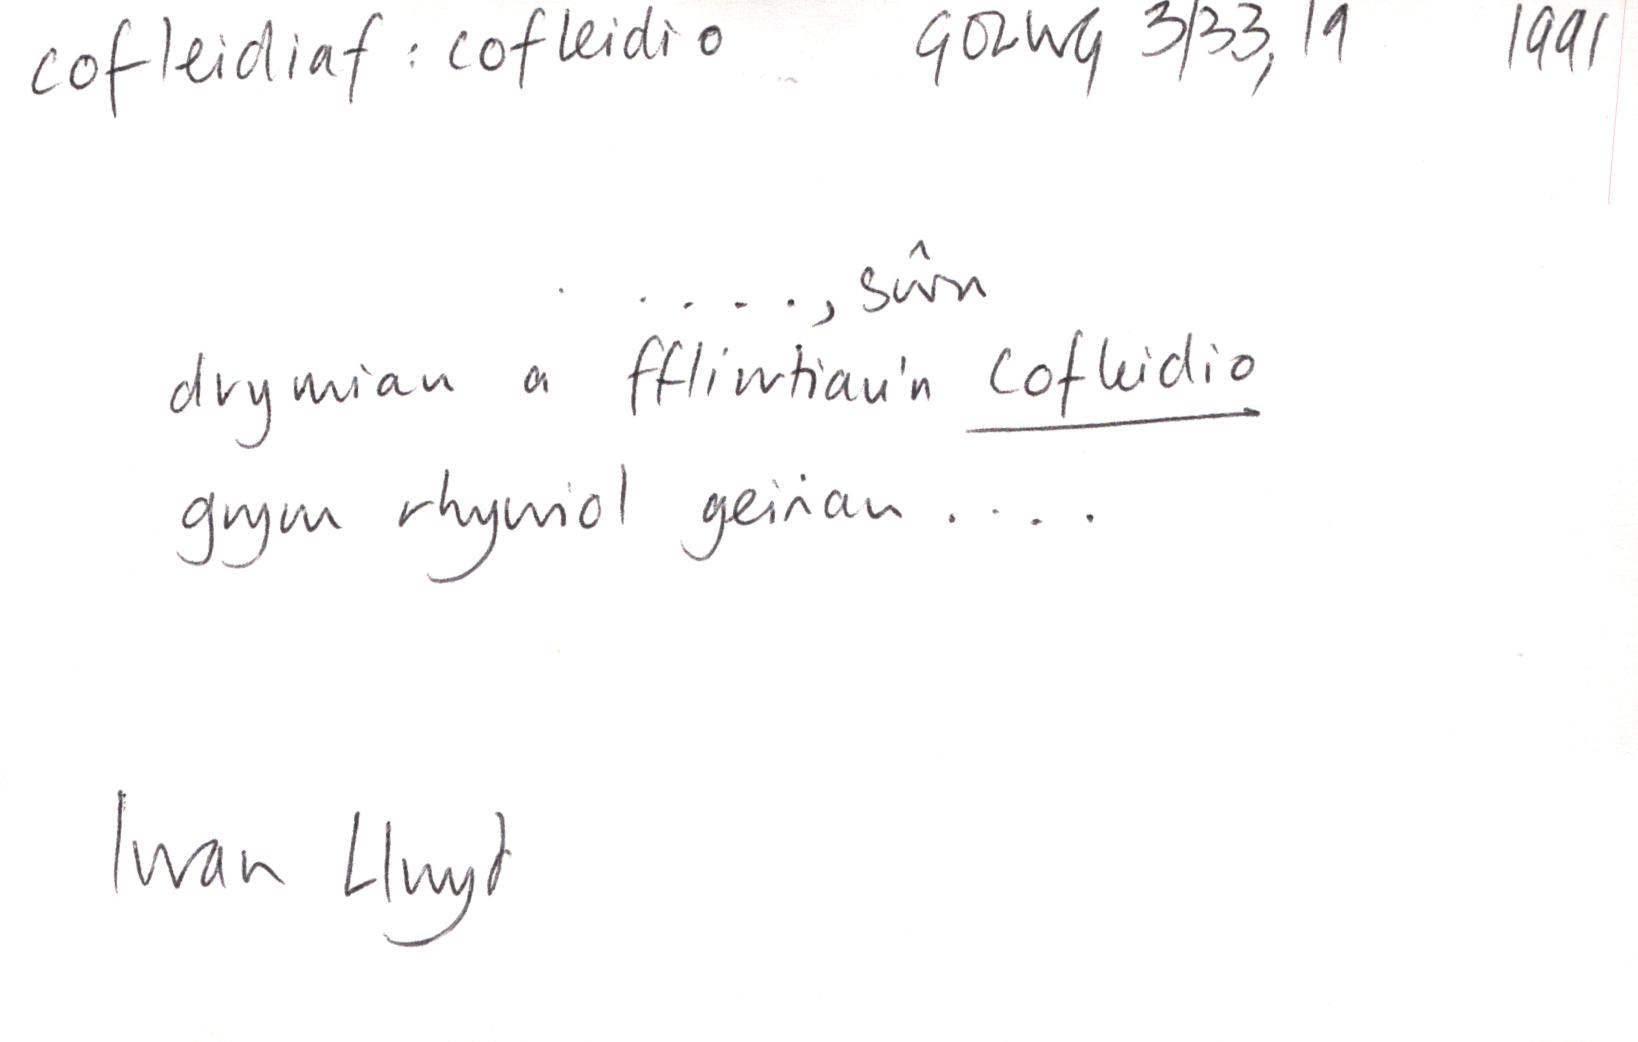 cofleidiaf : cofleidio GOLWG 3/33, 19 1991
. ...., sŵn
drymiau a ffliwtiau'n cofleidio
grym rhythmiol geiriau ....
Iwan Llwyd